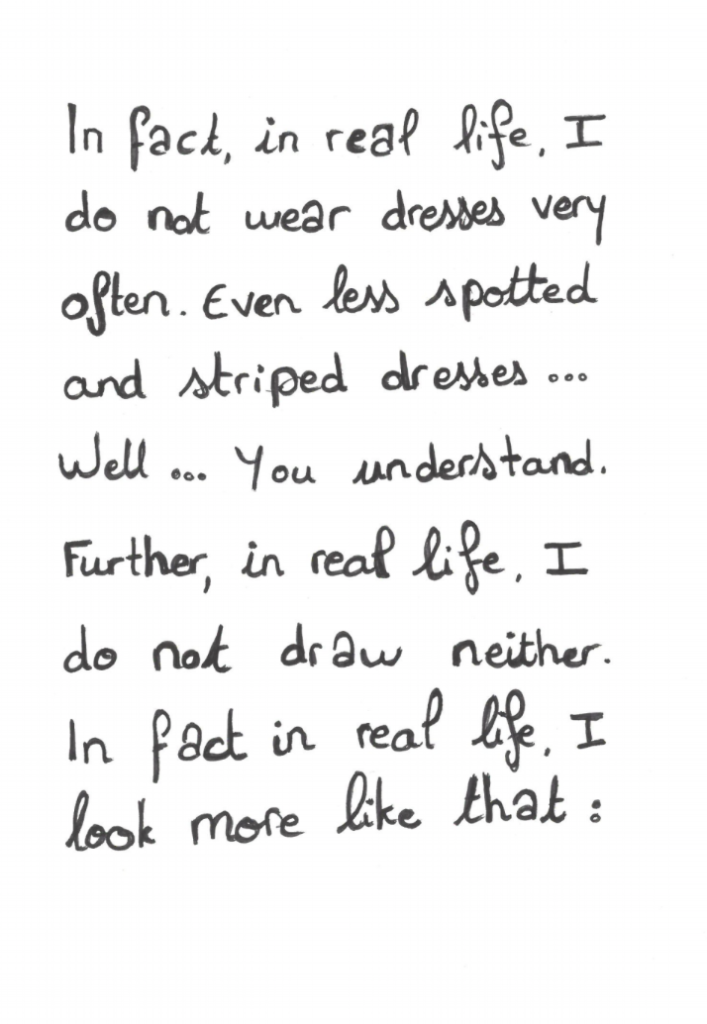 In fact, in real life, I
do not wear dresses very
often. Even less spotted
and striped dresses ...
Well ... You understand.
Further, in real life, I
do not draw neither.
In fact in real life, I
look more like that :